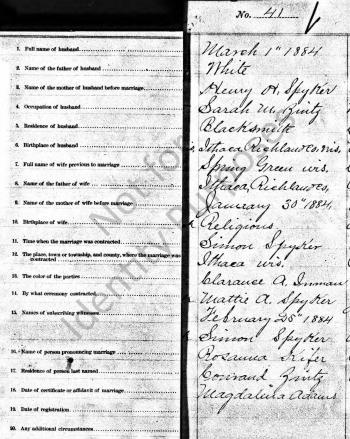 No. 41
1. Full name of husband
2. Name of the father of husband
3. Name of the mother of husband before marriage
4. Occupation of husband
5. Residence of husband
6. Birthplace of husband
7. Full name of wife previous to marriage
8. Name of the father of wife
9. Name of the mother of wife before marriage
10. Birthplace of wife
11. Time when the marriage was contracted
12. The place, town or township, and county, where the marriage was contracted
13. The color of the parties
14. By what ceremony contracted
15. Names of subscribing witnesses
16. Name of person pronouncing marriage
17. Residence of person last named
18. Date of certificate or affidavit of marriage
19. Date of registration
20. Any additional circumstances
March 1st 1884
White
Henry A. Spyker
Sarah M. Zintz
Blacksmith
Ithaca, Richland Co, Wis.
Spring Green Wis.
Ithaca, Richland Co,
January 30th 1884
Religious
Simon Spyker
Ithaca Wis.
Clarance A. Inman
Mattie A. Spyker
February 25th 1884
Simon Spyker
Rosanna
Zintz
Magdalena Adams